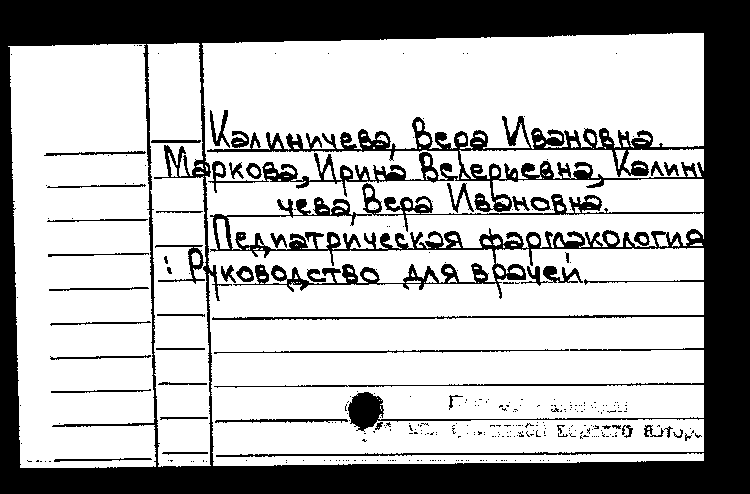 Калиничева, Вера Ивановна.
Маркова, Ирина Валерьевна, Калини
чева, Вера Ивановна.
Педиатрическая фармакология
: Руководство для врачей.
первого автора